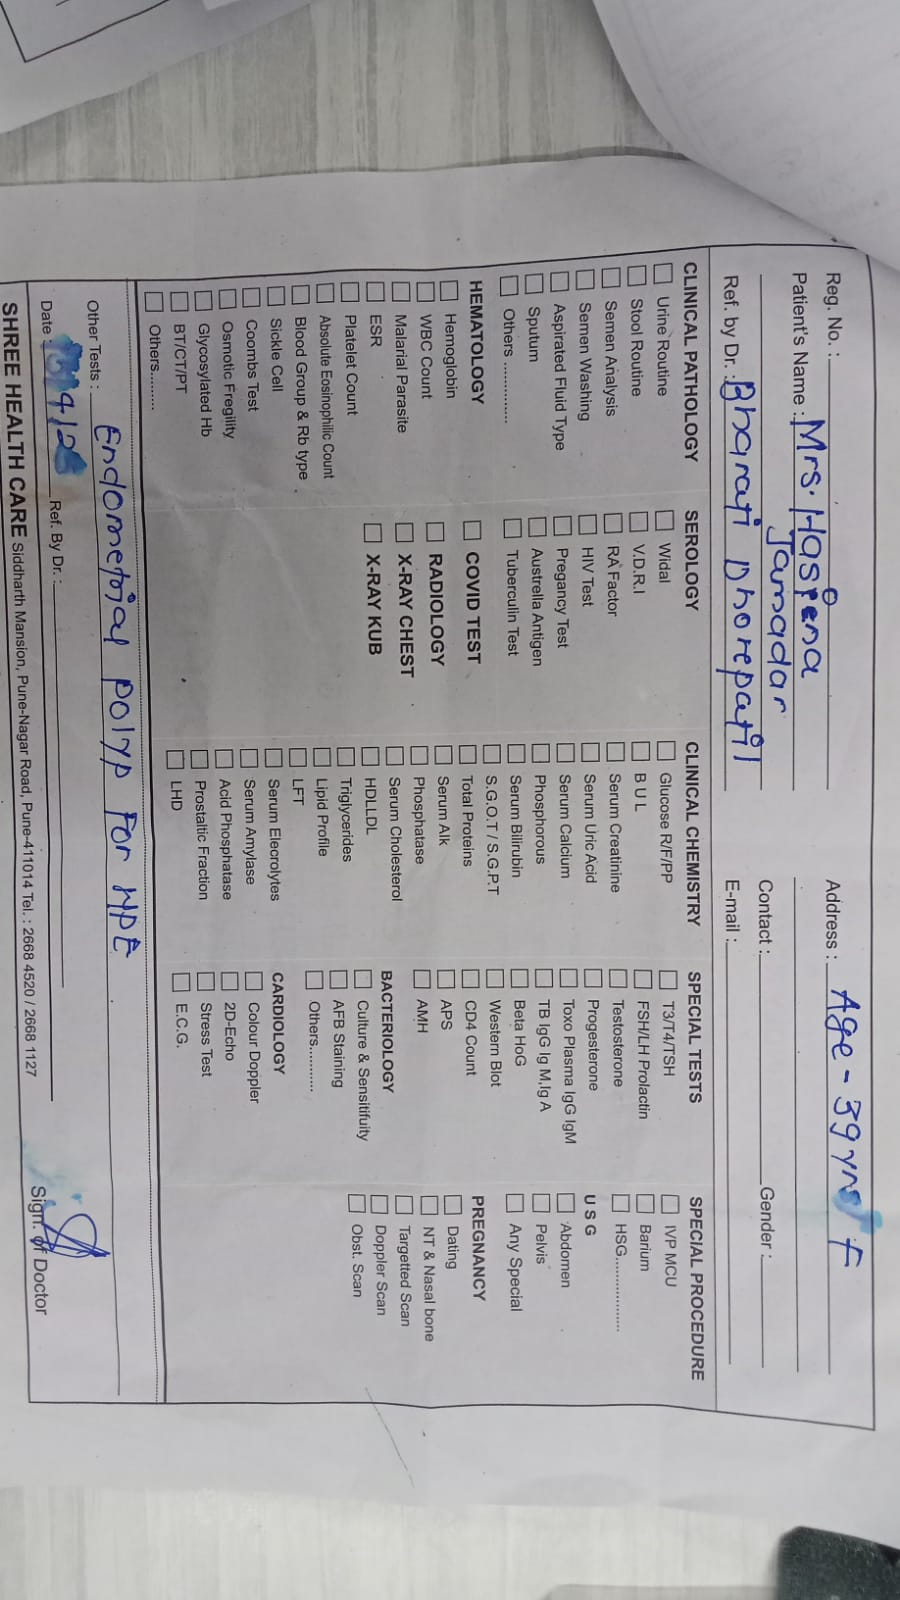 Reg. No. :
Patient's Name : Mrs. Haseena
Jamadar
Ref. by Dr. : Bharati Dhorepatil
Address : Age - 39 yrs F
Contact :
Gender :
E-mail :
CLINICAL PATHOLOGY
Urine Routine
Stool Routine
Semen Analysis
Semen Washing
Aspirated Fluid Type
Sputum
Others ............
HEMATOLOGY
Hemoglobin
WBC Count
Malarial Parasite
ESR
Platelet Count
Absolute Eosinophilic Count
Blood Group & Rb type
Sickle Cell
Coombs Test
Osmotic Fregility
Glycosylated Hb
BT/CT/PT
Others.........
SEROLOGY
Widal
V.D.R.I
RA Factor
HIV Test
Pregancy Test
Austrella Antigen
Tuberculin Test
COVID TEST
RADIOLOGY
X-RAY CHEST
X-RAY KUB
CLINICAL CHEMISTRY
Glucose R/F/PP
B U L
Serum Creatinine
Serum Uric Acid
Serum Calcium
Phosphorous
Serum Bilirubin
S.G.O.T / S.G.P.T
Total Proteins
Serum Alk
Phosphatase
Serum Cholesterol
HDLLDL
Triglycerides
Lipid Profile
LFT
Serum Elecrolytes
Serum Amylase
Acid Phosphatase
Prostaltic Fraction
LHD
SPECIAL TESTS
T3/T4/TSH
FSH/LH Prolactin
Testosterone
Progesterone
Toxo Plasma IgG IgM
TB IgG Ig M,Ig A
Beta HoG
Western Blot
CD4 Count
APS
AMH
BACTERIOLOGY
Culture & Sensitifuity
AFB Staining
Others.........
CARDIOLOGY
Colour Doppler
2D-Echo
Stress Test
E.C.G.
SPECIAL PROCEDURE
IVP MCU
Barium
HSG................
U S G
Abdomen
Pelvis
Any Special
PREGNANCY
Dating
NT & Nasal bone
Targetted Scan
Doppler Scan
Obst. Scan
Other Tests : Endometrial polyp For HPE
Date : Ref. By Dr. :
Sign. of Doctor
SHREE HEALTH CARE Siddharth Mansion, Pune-Nagar Road, Pune-411014 Tel. : 2668 4520 / 2668 1127